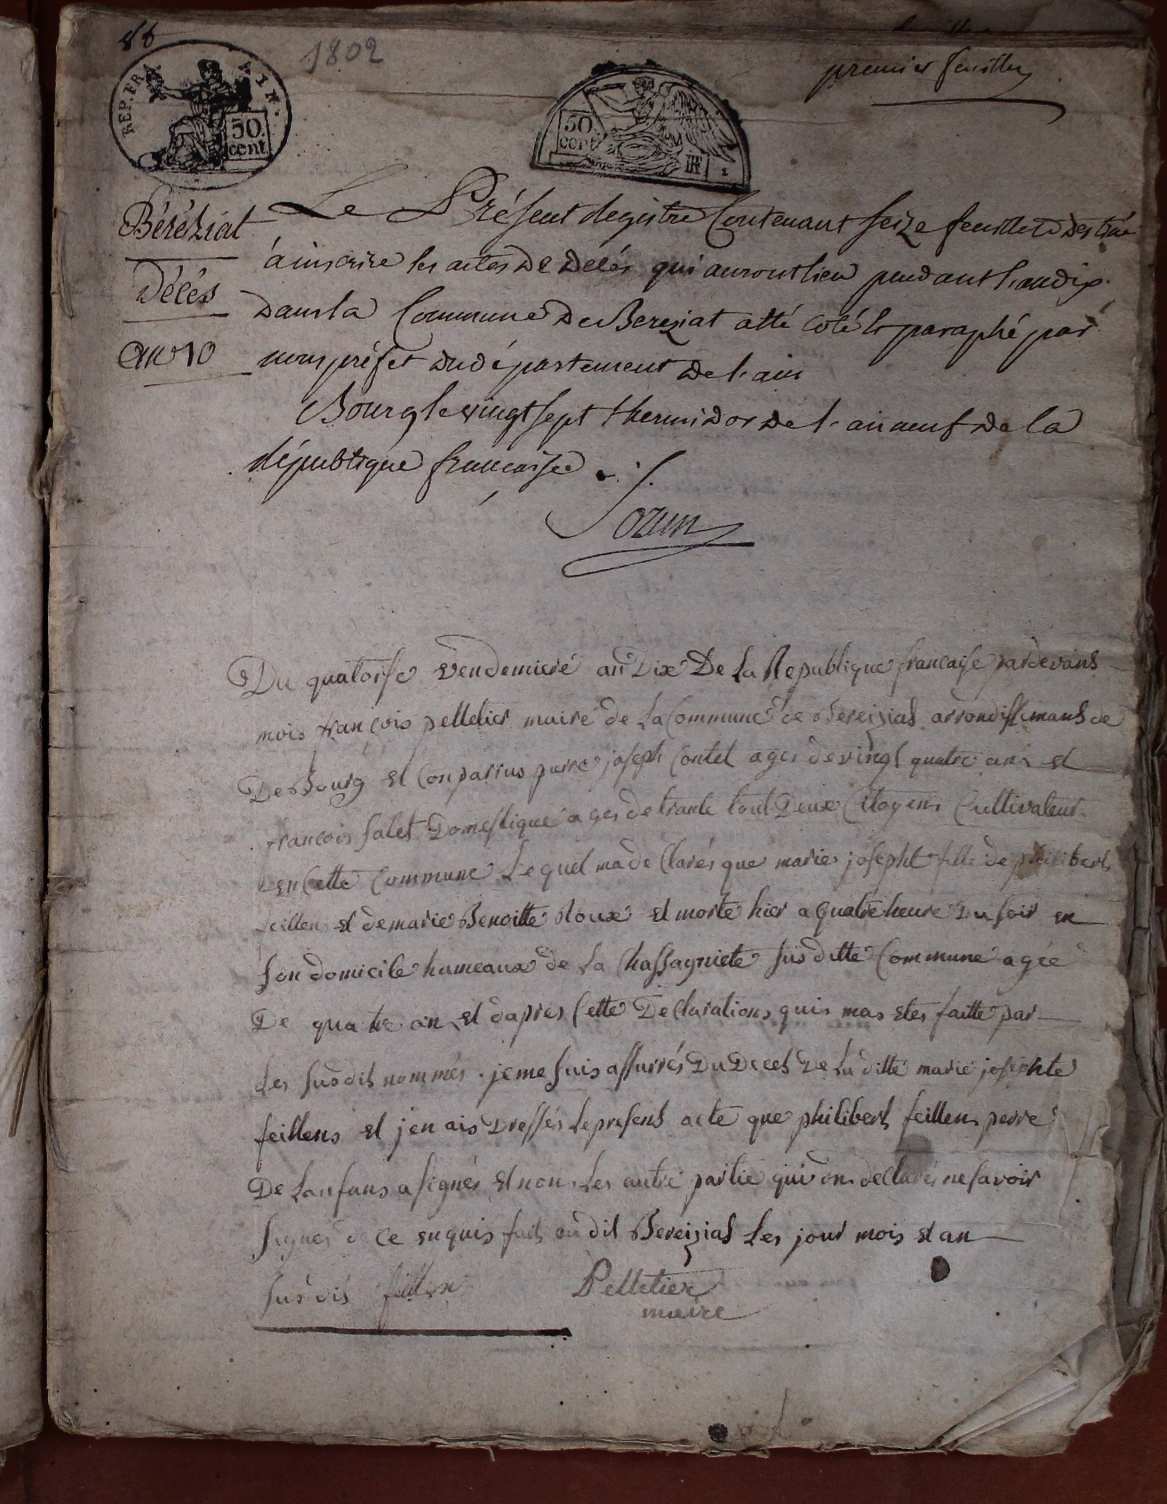 88
1802
premier feuillet
REP. FRA
AIN.
50.
cent
50
cent
Béréziat
Décés
an 10
Le Présent Registre Contenant seize feuillets destiné
à inscrire les actes de decés qui auront lieu pendant l'an dix
dans la Commune de Bereziat a été coté & paraphé par
nous préfet du département de l'ain
Bourg le vingt sept thermidor de l'an neuf de la
république française.
Du quatorse vendemiere an Dix De La Republique francaise pardevans
mois francois pelletier maire de La Commune de Bereiziat arrondissemans de
De Bourg et Conparius pierre joseph Contet ages de vingt quatre ans et
francois salet Domestique ages de trante tout Deux Citoyens Cultivateur
en Cette Commune Lequel ma declarés que marie josephte fille de philibert
feillens et de marie Benoitte Roux et morte hier a quatre heure Du soir en
son domicile hameaux de La Chassagniete susditte Commune agée
De quatre an et dapres Cette Declarations quis mas etes faitte par
Les susdits nommés. je me suis assurrés Du Deces De La ditte marie josephte
feillens et jen ais Dressés Le present acte que philibert feillens perre
De Lanfans a signés et non Les autre partie qui on declarés ne savoir
signés de ce enquis fait au dit Bereizias Les jour mois et an
susdis feillens
Pelletier
maire